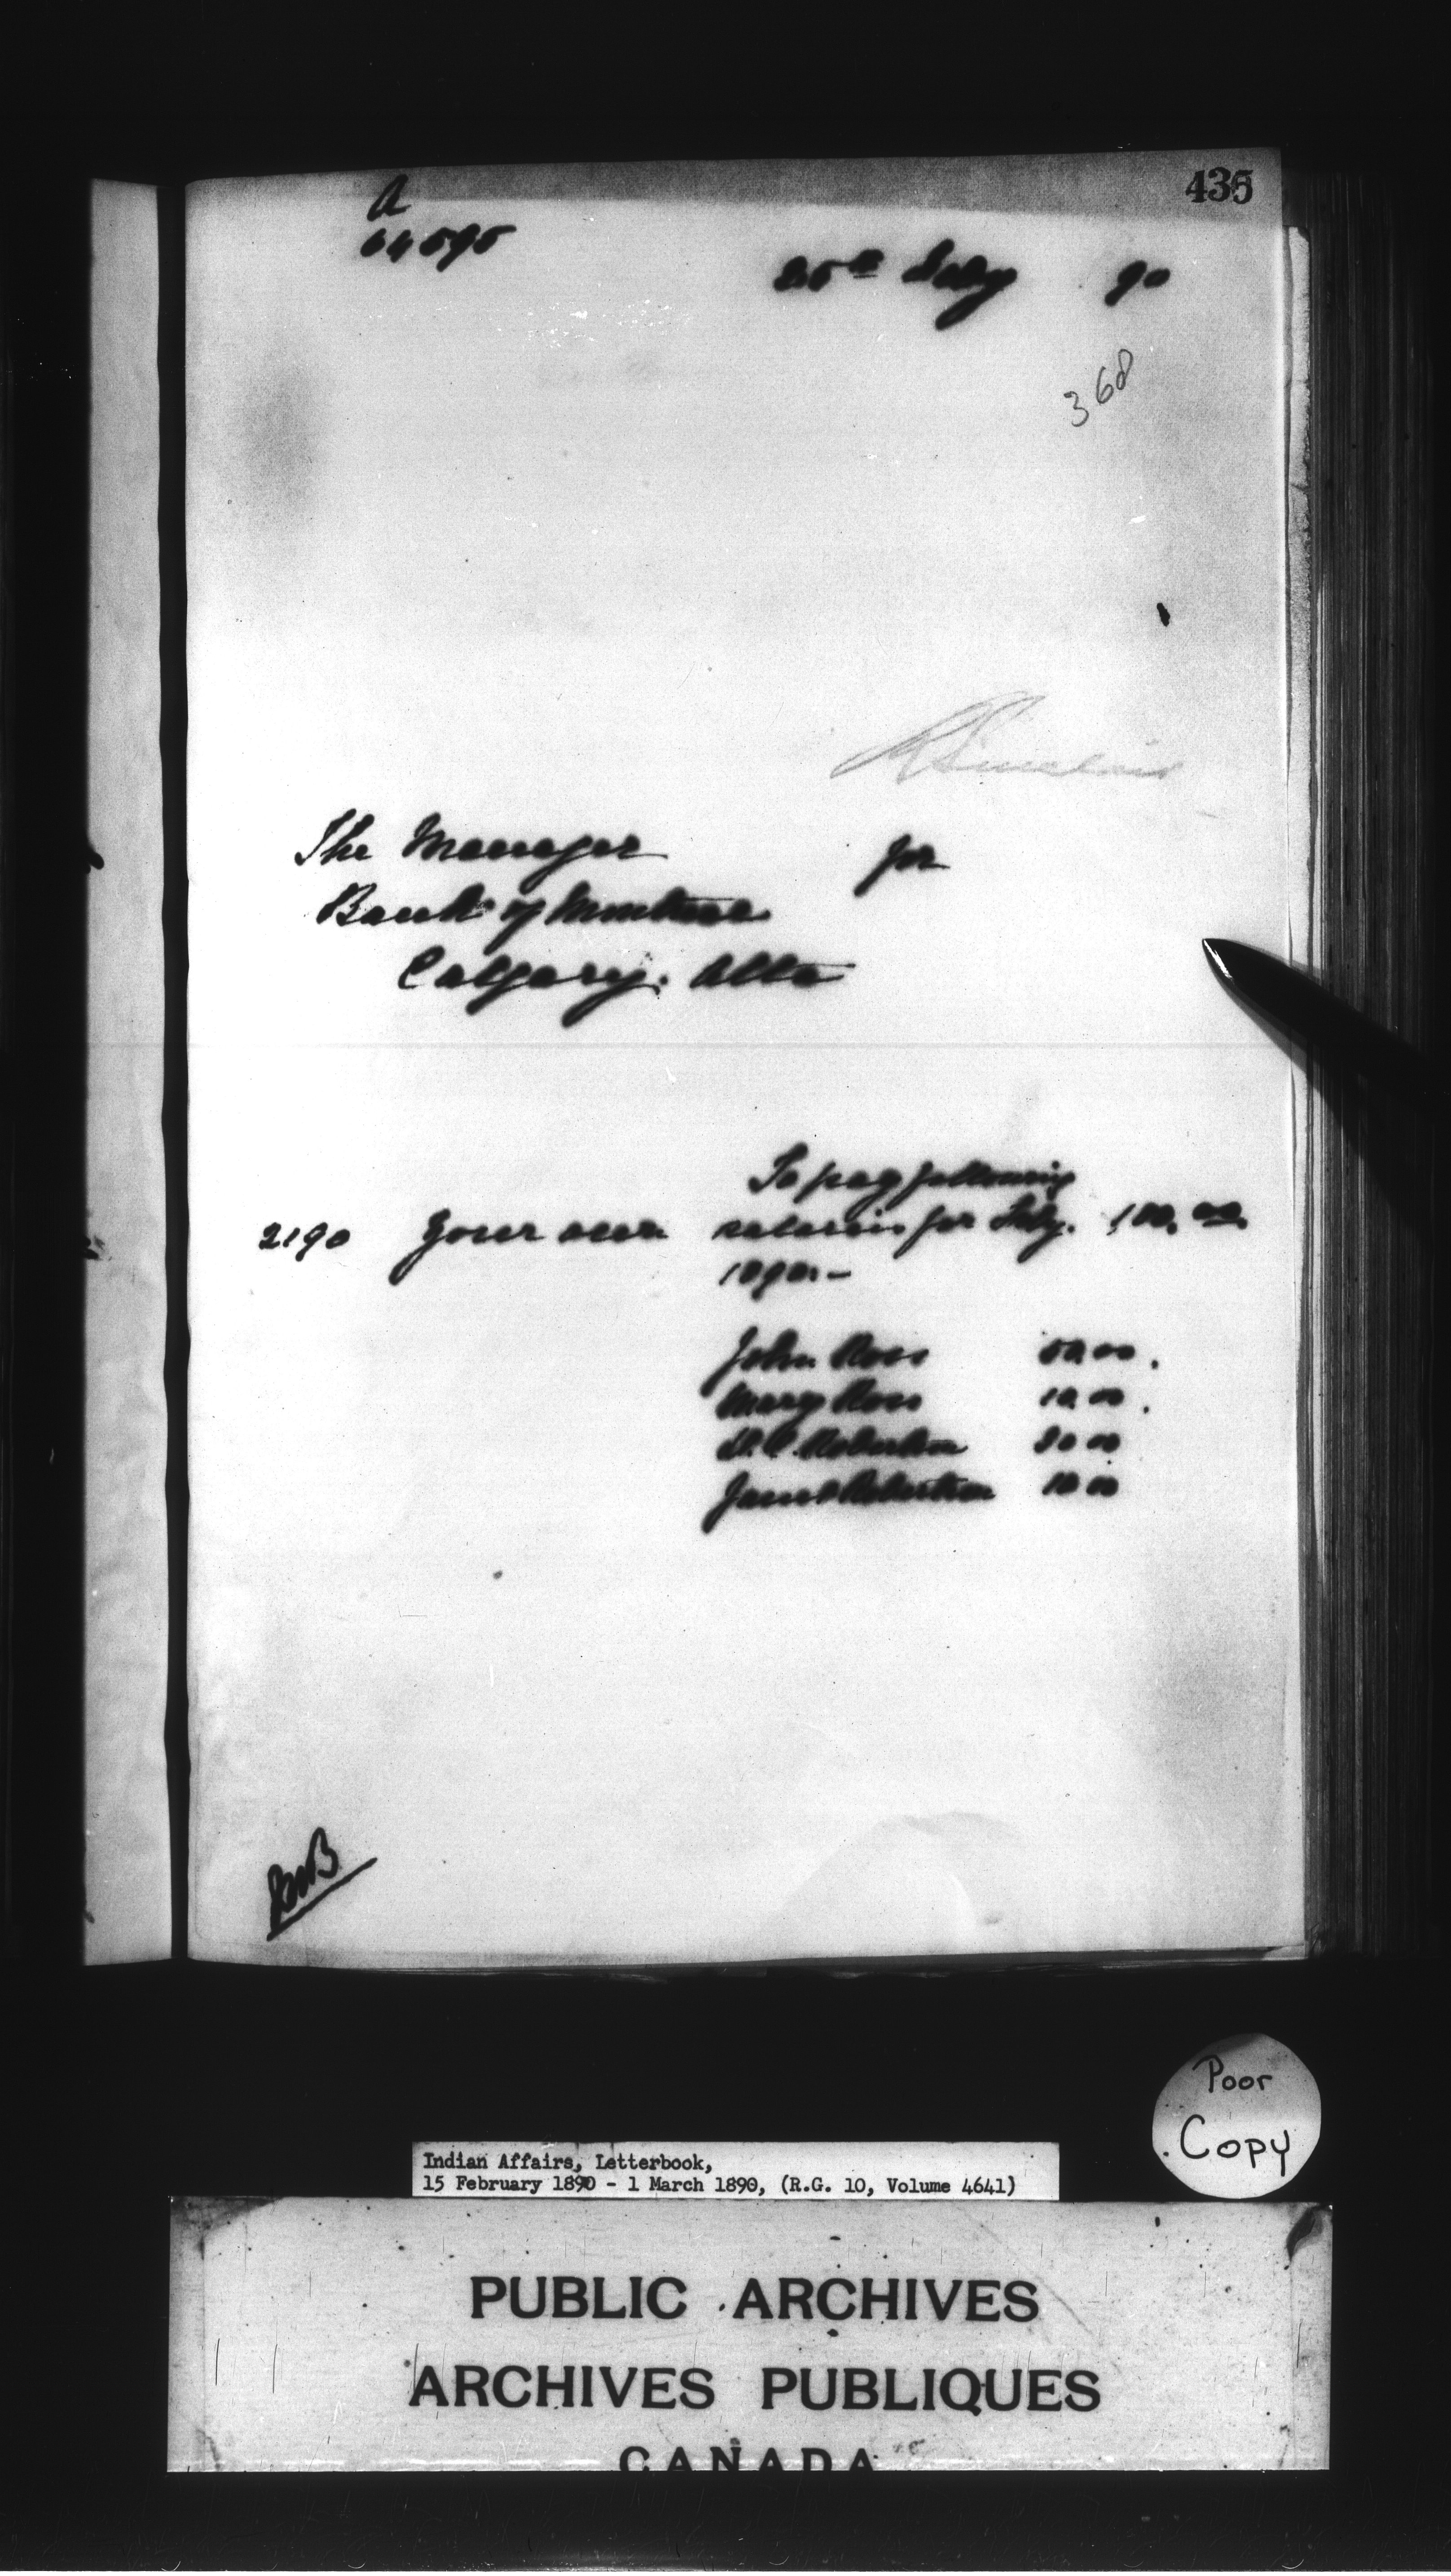 435
A
64595
25th Feby 90
368
Sinclair
The Manager for
Bank of Montreal
Calgary. Alta
To pay following
2190 Your own salaries for Feby. 100.00
1890. —
John Ross 50.00.
Mary Ross 10.00.
Robertson 30 00
Janet Robertson 10 00
Poor
Copy
Indian Affairs, Letterbook,
15 February 1890 - 1 March 1890, (R.G. 10, Volume 4641)
PUBLIC ARCHIVES
ARCHIVES PUBLIQUES
CANADA